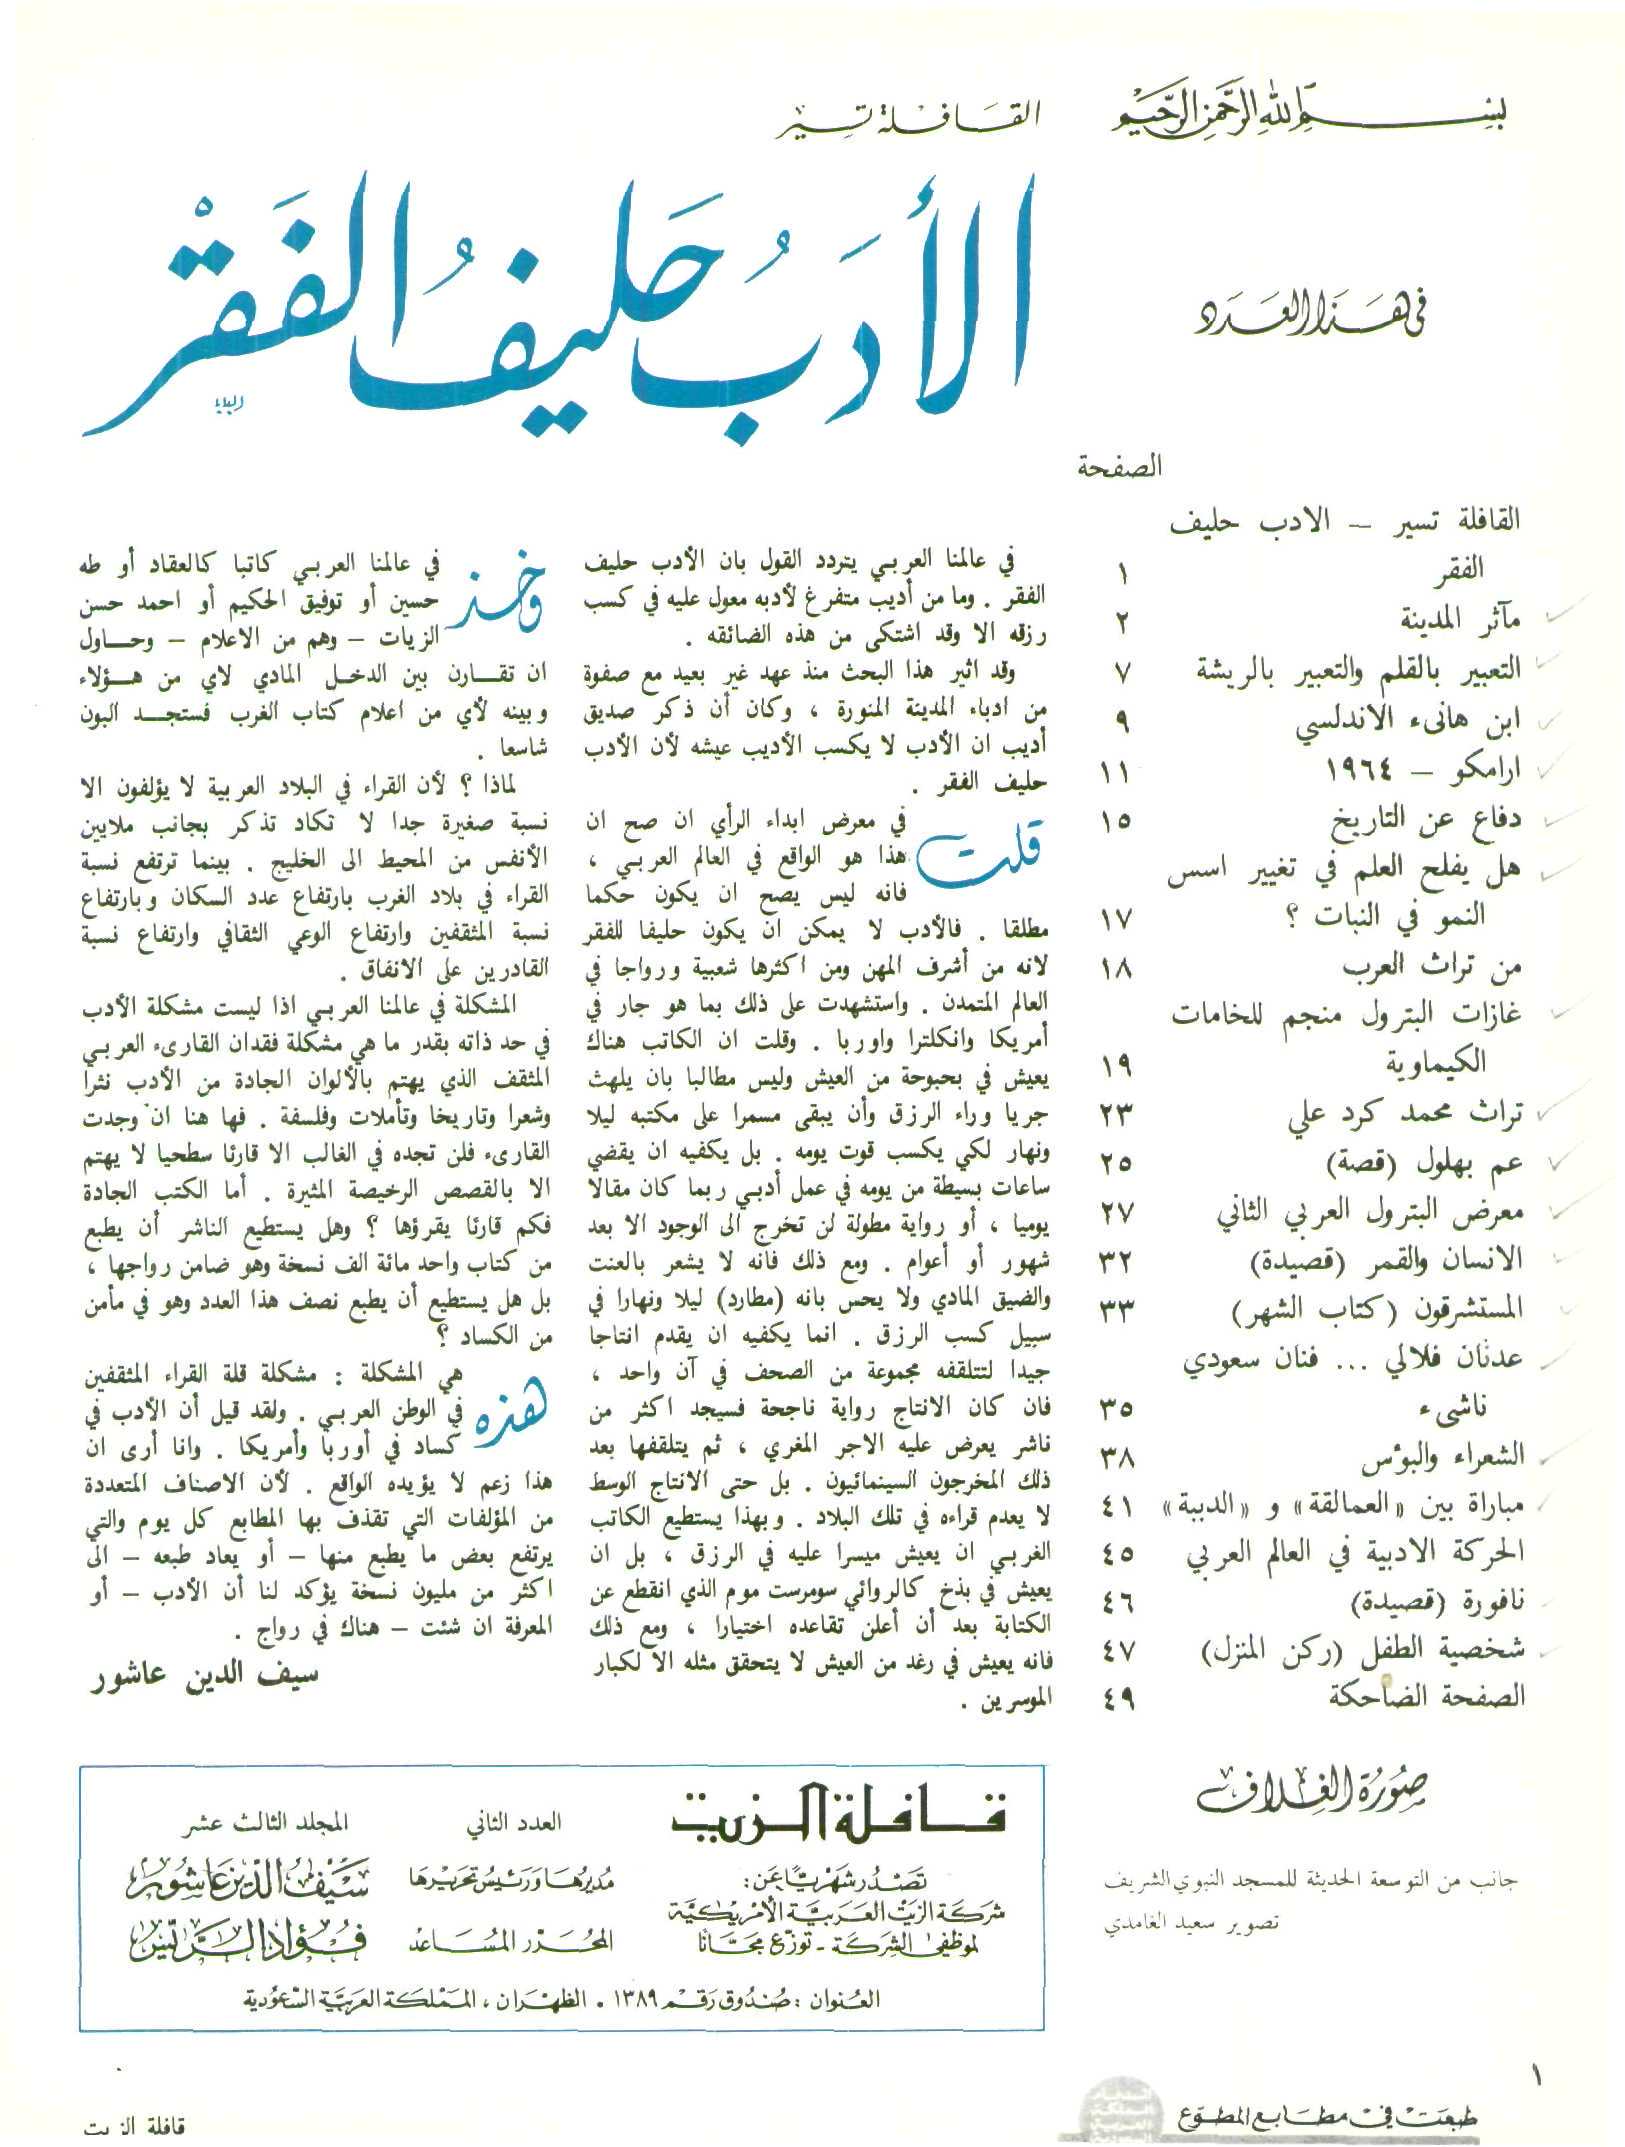 بسم الله الرحمن الرحيم
في هذا العدد
الصفحة
القافلة تسير – الادب حليف
الفقر ١
مآثر المدينة ٢
التعبير بالقلم والتعبير بالريشة ٧
ابن هانىء الاندلسي ٩
ارامكو – ١٩٦٤ ١١
دفاع عن التاريخ ١٥
هل يفلح العلم في تغيير اسس
النمو في النبات ؟ ١٧
من تراث العرب ١٨
غازات البترول منجم للخامات
الكيماوية ١٩
تراث محمد كرد علي ٢٣
عم بهلول (قصة) ٢٥
معرض البترول العربي الثاني ٢٧
الانسان والقمر (قصيدة) ٣٢
المستشرقون (كتاب الشهر) ٣٣
عدنان فلالي ... فنان سعودي
ناشىء ٣٥
الشعراء والبؤس ٣٨
مباراة بين «العمالقة» و «الدببة» ٤١
الحركة الادبية في العالم العربي ٤٥
نافورة (قصيدة) ٤٦
شخصية الطفل (ركن المنزل) ٤٧
الصفحة الضاحكة ٤٩
صورة الغلاف
جانب من التوسعة الحديثة للمسجد النبوي الشريف
تصوير سعيد الغامدي
القافلة تسير
الأدَبُ حَليفُ الفَقْر
في عالمنا العربي يتردد القول بان الأدب حليف
الفقر . وما من أديب متفرغ لأدبه معول عليه في كسب
رزقه الا وقد اشتكى من هذه الضائقه .
وقد اثير هذا البحث منذ عهد غير بعيد مع صفوة
من ادباء المدينة المنورة ، وكان أن ذكر صديق
أديب ان الأدب لا يكسب الأديب عيشه لأن الأدب
حليف الفقر .
قلت في معرض ابداء الرأي ان صح ان
هذا هو الواقع في العالم العربي ،
فانه ليس يصح ان يكون حكما
مطلقا . فالأدب لا يمكن ان يكون حليفا للفقر
لانه من أشرف المهن ومن اكثرها شعبية ورواجا في
العالم المتمدن . واستشهدت على ذلك بما هو جار في
أمريكا وانكلترا واوربا . وقلت ان الكاتب هناك
يعيش في بحبوحة من العيش وليس مطالبا بان يلهث
جريا وراء الرزق وأن يبقى مسمرا على مكتبه ليلا
ونهار لكي يكسب قوت يومه . بل يكفيه ان يقضي
ساعات بسيطة من يومه في عمل أدبي ربما كان مقالا
يوميا ، أو رواية مطولة لن تخرج الى الوجود الا بعد
شهور أو أعوام . ومع ذلك فانه لا يشعر بالعنت
والضيق المادي ولا يحس بانه (مطارد) ليلا ونهارا في
سبيل كسب الرزق . انما يكفيه ان يقدم انتاجا
جيدا لتتلقفه مجموعة من الصحف في آن واحد ،
فان كان الانتاج رواية ناجحة فسيجد اكثر من
ناشر يعرض عليه الاجر المغري ، ثم يتلقفها بعد
ذلك المخرجون السينمائيون . بل حتى الانتاج الوسط
لا يعدم قراءه في تلك البلاد . وبهذا يستطيع الكاتب
الغربي ان يعيش ميسرا عليه في الرزق ، بل ان
يعيش في بذخ كالروائي سومرست موم الذي انقطع عن
الكتابة بعد أن أعلن تقاعده اختيارا ، ومع ذلك
فانه يعيش في رغد من العيش لا يتحقق مثله الا لكبار
الموسرين .
وخذ في عالمنا العربي كاتبا كالعقاد أو طه
حسين أو توفيق الحكيم أو احمد حسن
الزيات – وهم من الاعلام – وحاول
ان تقارن بين الدخل المادي لاي من هؤلاء
وبينه لأي من اعلام كتاب الغرب فستجد البون
شاسعا .
لماذا ؟ لأن القراء في البلاد العربية لا يؤلفون الا
نسبة صغيرة جدا لا تكاد تذكر بجانب ملايين
الأنفس من المحيط الى الخليج . بينما ترتفع نسبة
القراء في بلاد الغرب بارتفاع عدد السكان وبارتفاع
نسبة المثقفين وارتفاع الوعي الثقافي وارتفاع نسبة
القادرين على الانفاق .
المشكلة في عالمنا العربي اذا ليست مشكلة الأدب
في حد ذاته بقدر ما هي مشكلة فقدان القارىء العربي
المثقف الذي يهتم بالألوان الجادة من الأدب نثرا
وشعرا وتاريخا وتأملات وفلسفة . فها هنا ان وجدت
القارىء فلن تجده في الغالب الا قارئا سطحيا لا يهتم
الا بالقصص الرخيصة المثيرة . أما الكتب الجادة
فكم قارئا يقرؤها ؟ وهل يستطيع الناشر أن يطبع
من كتاب واحد مائة الف نسخة وهو ضامن رواجها ،
بل هل يستطيع أن يطبع نصف هذا العدد وهو في مأمن
من الكساد ؟
هذه هي المشكلة : مشكلة قلة القراء المثقفين
في الوطن العربي . ولقد قيل أن الأدب في
كساد في أوربا وأمريكا . وانا أرى ان
هذا زعم لا يؤيده الواقع . لأن الاصناف المتعددة
من المؤلفات التي تقذف بها المطابع كل يوم والتي
يرتفع بعض ما يطبع منها – أو يعاد طبعه – الى
اكثر من مليون نسخة يؤكد لنا أن الأدب – أو
المعرفة ان شئت – هناك في رواج .
سيف الدين عاشور
قافلة الزيت
العدد الثاني
المجلد الثالث عشر
تصدر شهريًا عن:
شركة الزيت العربية الأمريكية
لموظفي الشركة - توزع مجانًا
مديرها ورئيس تحريرها
سيف الدين عاشور
المحرر المساعد
فؤاد الريّس
العنوان : صندوق رقم ١٣٨٩ . الظهران ، المملكة العربية السعودية
١
طبعت في مطابع المطوع
قافلة الزيت